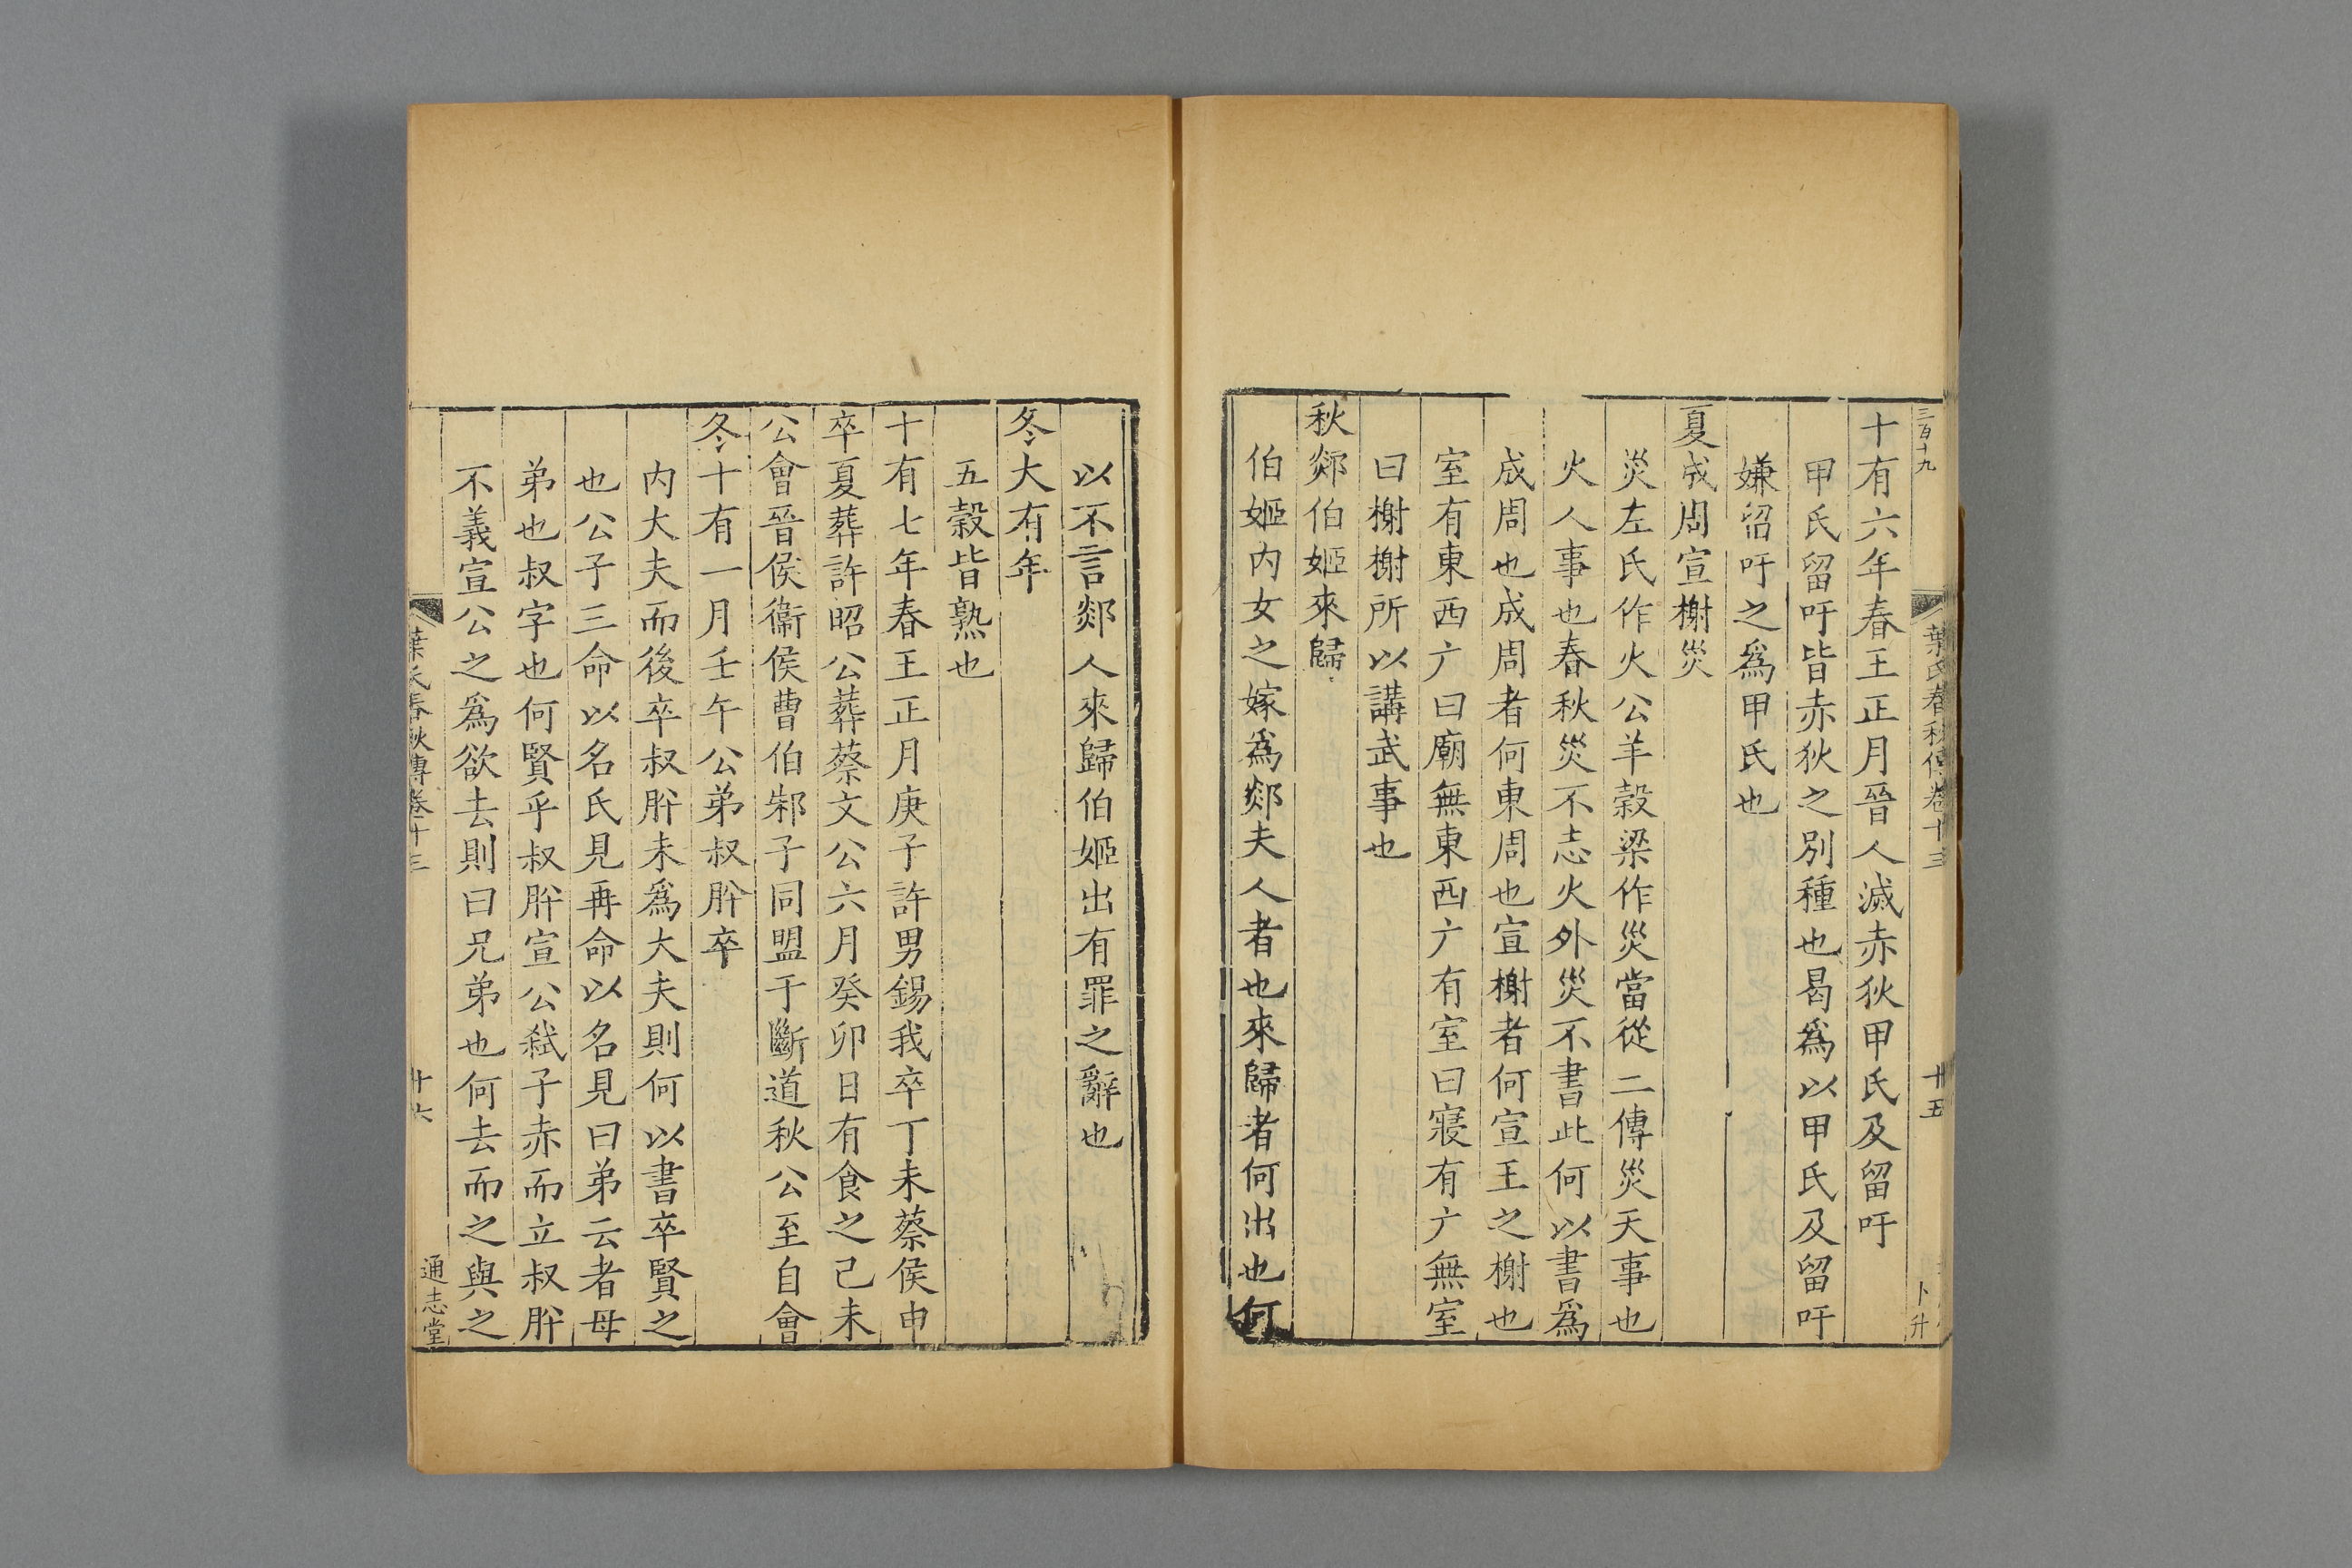 三百十九
葉氏春秋傳卷十三
十五
卜升
十有六年春王正月晉人滅赤狄甲氏及留吁
甲氏留吁皆赤狄之別種也曷爲以甲氏及留吁
嫌留吁之爲甲氏也
夏成周宣榭災
災左氏作火公羊穀梁作災當從二傳災天事也
火人事也春秋災不志火外災不書此何以書爲
成周也成周者何東周也宣榭者何宣王之榭也
室有東西𠂆曰廟無東西𠂆有室曰寢有𠂆無室
曰榭榭所以講武事也
秋郯伯姬來歸
伯姬内女之嫁爲郯夫人者也來歸者何出也何
以不言郯人來歸伯姬出有罪之辭也
冬大有年
五穀皆熟也
十有七年春王正月庚子許男錫我卒丁未蔡侯申
卒夏葬許昭公葬蔡文公六月癸卯日有食之己未
公會晉侯衞侯曹伯邾子同盟于斷道秋公至自會
冬十有一月壬午公弟叔肸卒
内大夫而後卒叔肸未爲大夫則何以書卒賢之
也公子三命以名氏見再命以名見曰弟云者母
弟也叔字也何賢乎叔肸宣公弑子赤而立叔肸
不義宣公之爲欲去則曰兄弟也何去而之與之
葉氏春秋傳卷十三
十六
通志堂